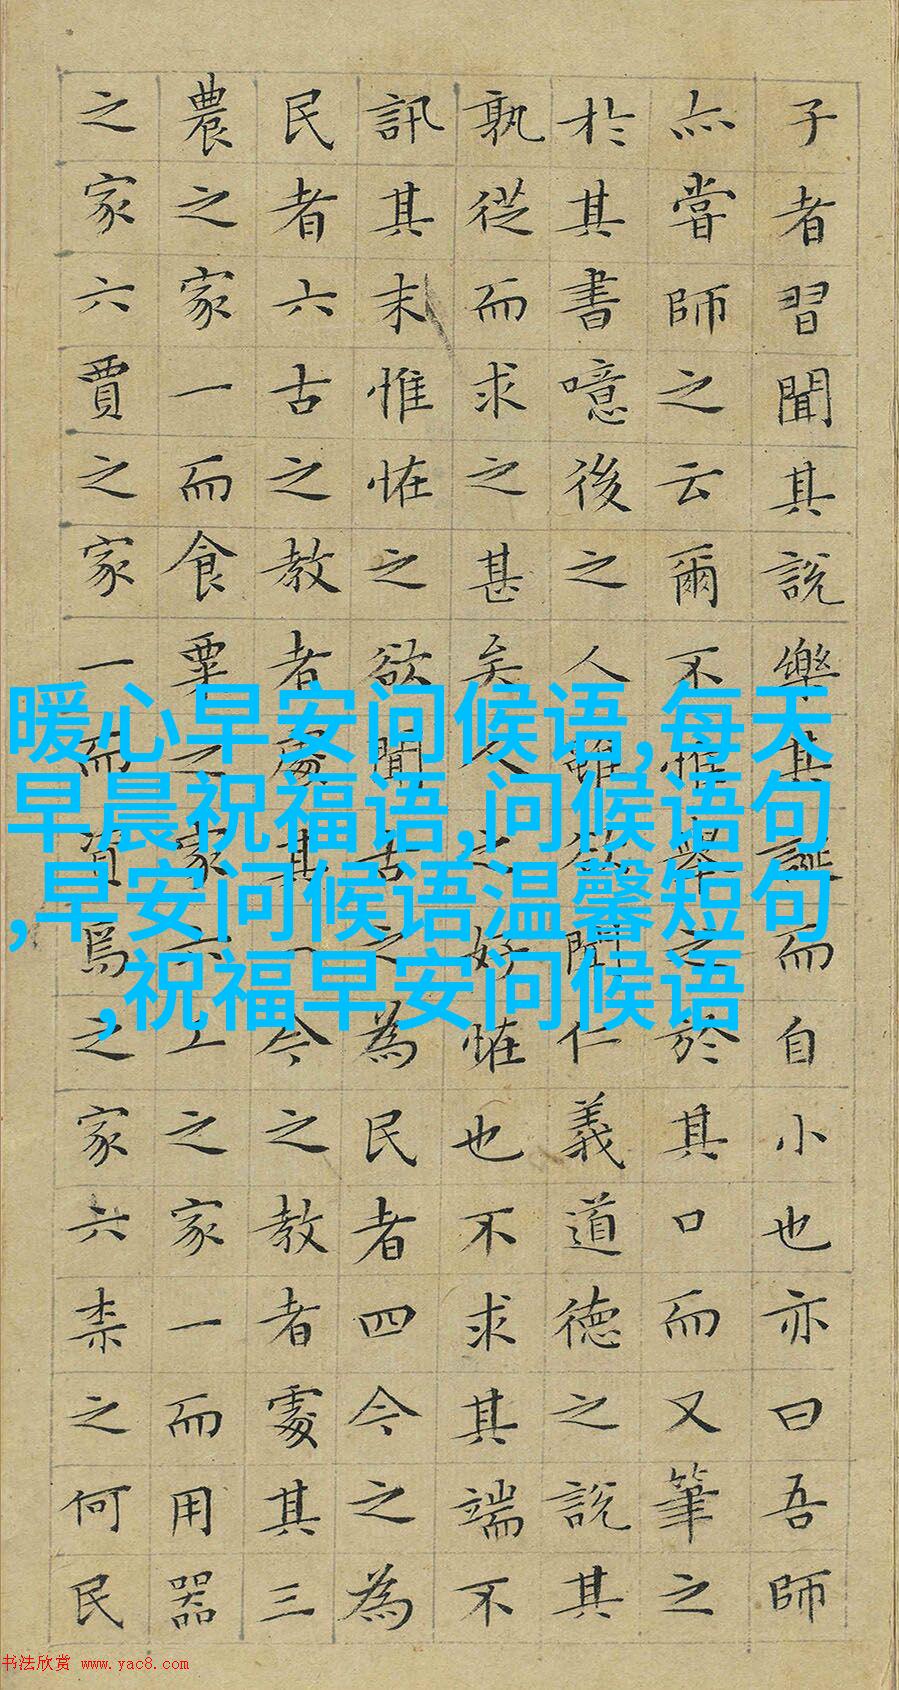 子者習聞其說樂其誕而自小也亦曰吾師
亦嘗師之云爾不惟舉之於其口而又筆之
於其書噫後之人雖欲聞仁義道德之說其
孰從而求之甚矣人之好恠也不求其端不
訊其末惟恠之欲聞古之為民者四今之為
民者六古之教者處其一今之教者處其三
農之家一而食粟之家六工之家一而用器
之家六賈之家一而資焉之家六柰之何民
暖心早安问候语,每天
早晨祝福语,问候语句
,早安问候语温馨短句
,祝福早安问候语
书法欣赏 www.yac8.com